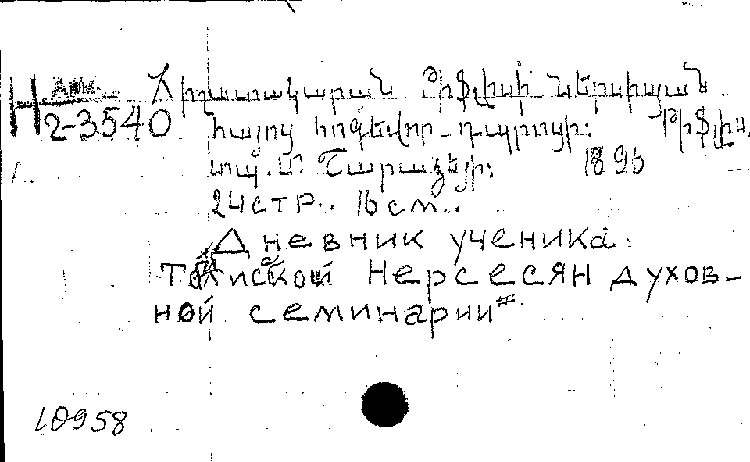 Յիշատակարան Թիֆլիսի Ներսիսյան
H2-3540 հայոց հոգեւոր-դպրոցի: Թիֆլիս.
տպ. Մ. Շարաձեի: 1896
24стр.. 16см..
Дневник ученика
Нерсесян духов-
ной семинарии
10958